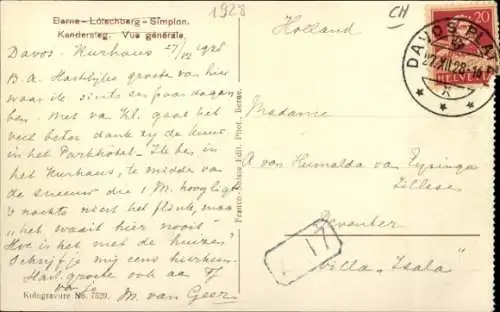 1928
CH
Berne - Lötschberg - Simplon.
Kandersteg. Vue générale.
Holland
DAVOS PLATZ
27.XII.28
20
HELVETIA
Davos. Kurhaus 27/12 1928
B.A. Hartelijke groete van hier
waar ik sints een paar dagen
ben. Met van Kl. gaat het
veel beter dank zij de kuur
in het Parkhôtel. Ik ben in
het Kurhaus, te midden van
de sneeuw die 1 M. hoog ligt
's nachts niest het flink, maar
"het waait hier nooit"
Hoe is het met de huizen?
Schrijf je mij eens hierheen
Hart. groete ook aan
van je M. van Geer
Madame
A van Humalda van Eysinga
Deventer
Villa "Isala"
17
Franco-Suisse Edit. Phot. Berne.
Kologravure No. 7529.